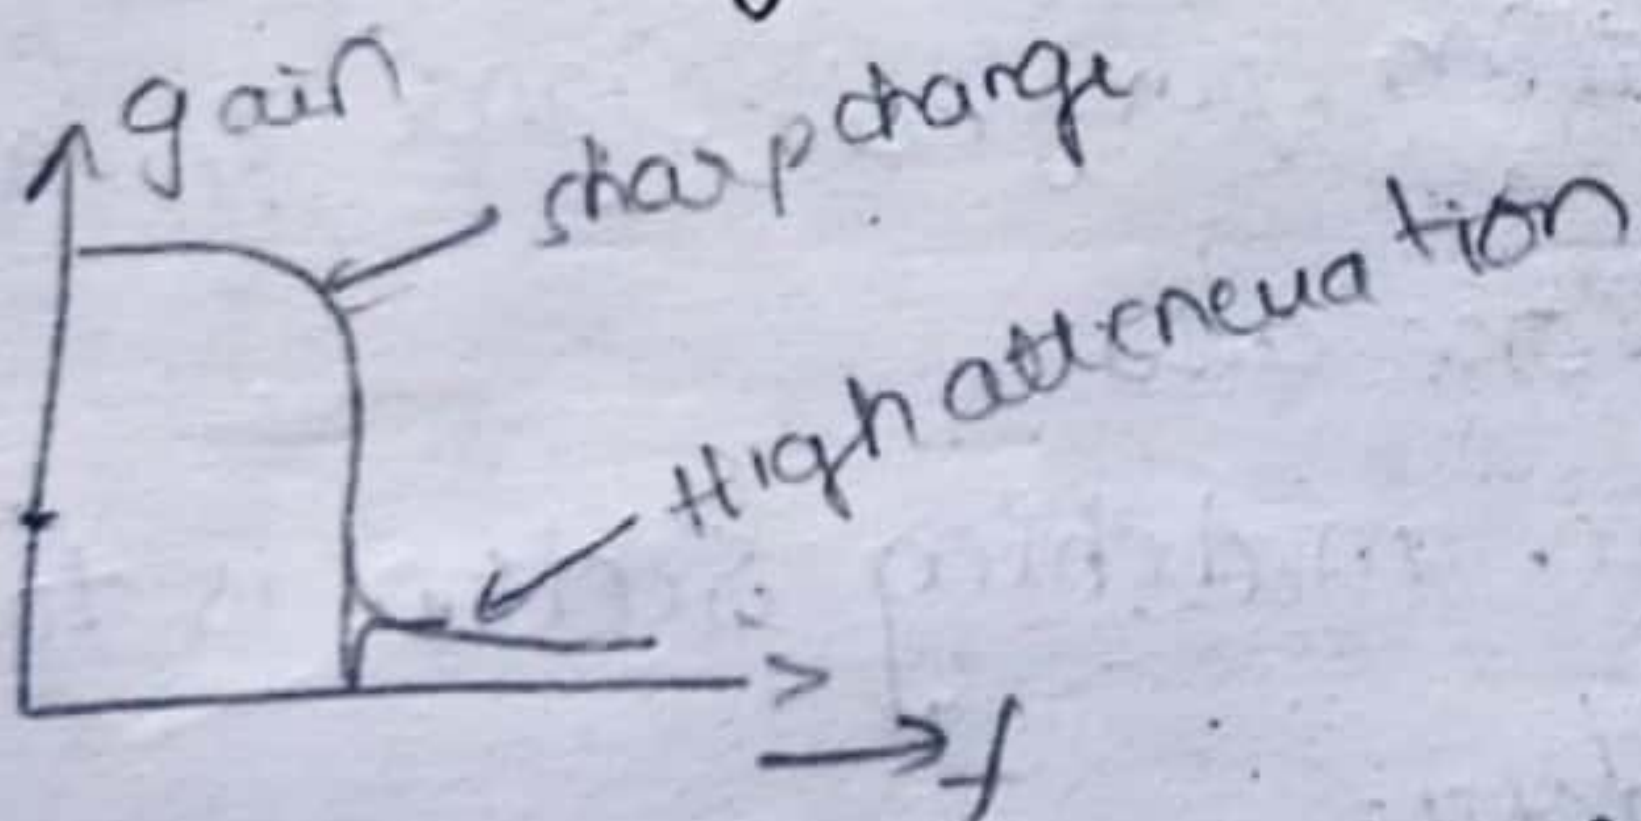 gain
sharp change
High atteneuation
f